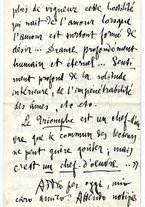 plus de vigueur cette hostilité
qui naît de l'amour lorsque
l'amour est surtout formé de
désir... Drame profondément
humain et éternel... Senti-
ment profond de la solitude
intérieure, de l'impénétrabilité
des âmes, etc. etc.
Le Triomphe est un chef-d'œu-
vre que le commun des
ne peut guère goûter; mais
c'est un chef d'œuvre... »)
Addio per oggi, mio
caro amico. Attendo notizie